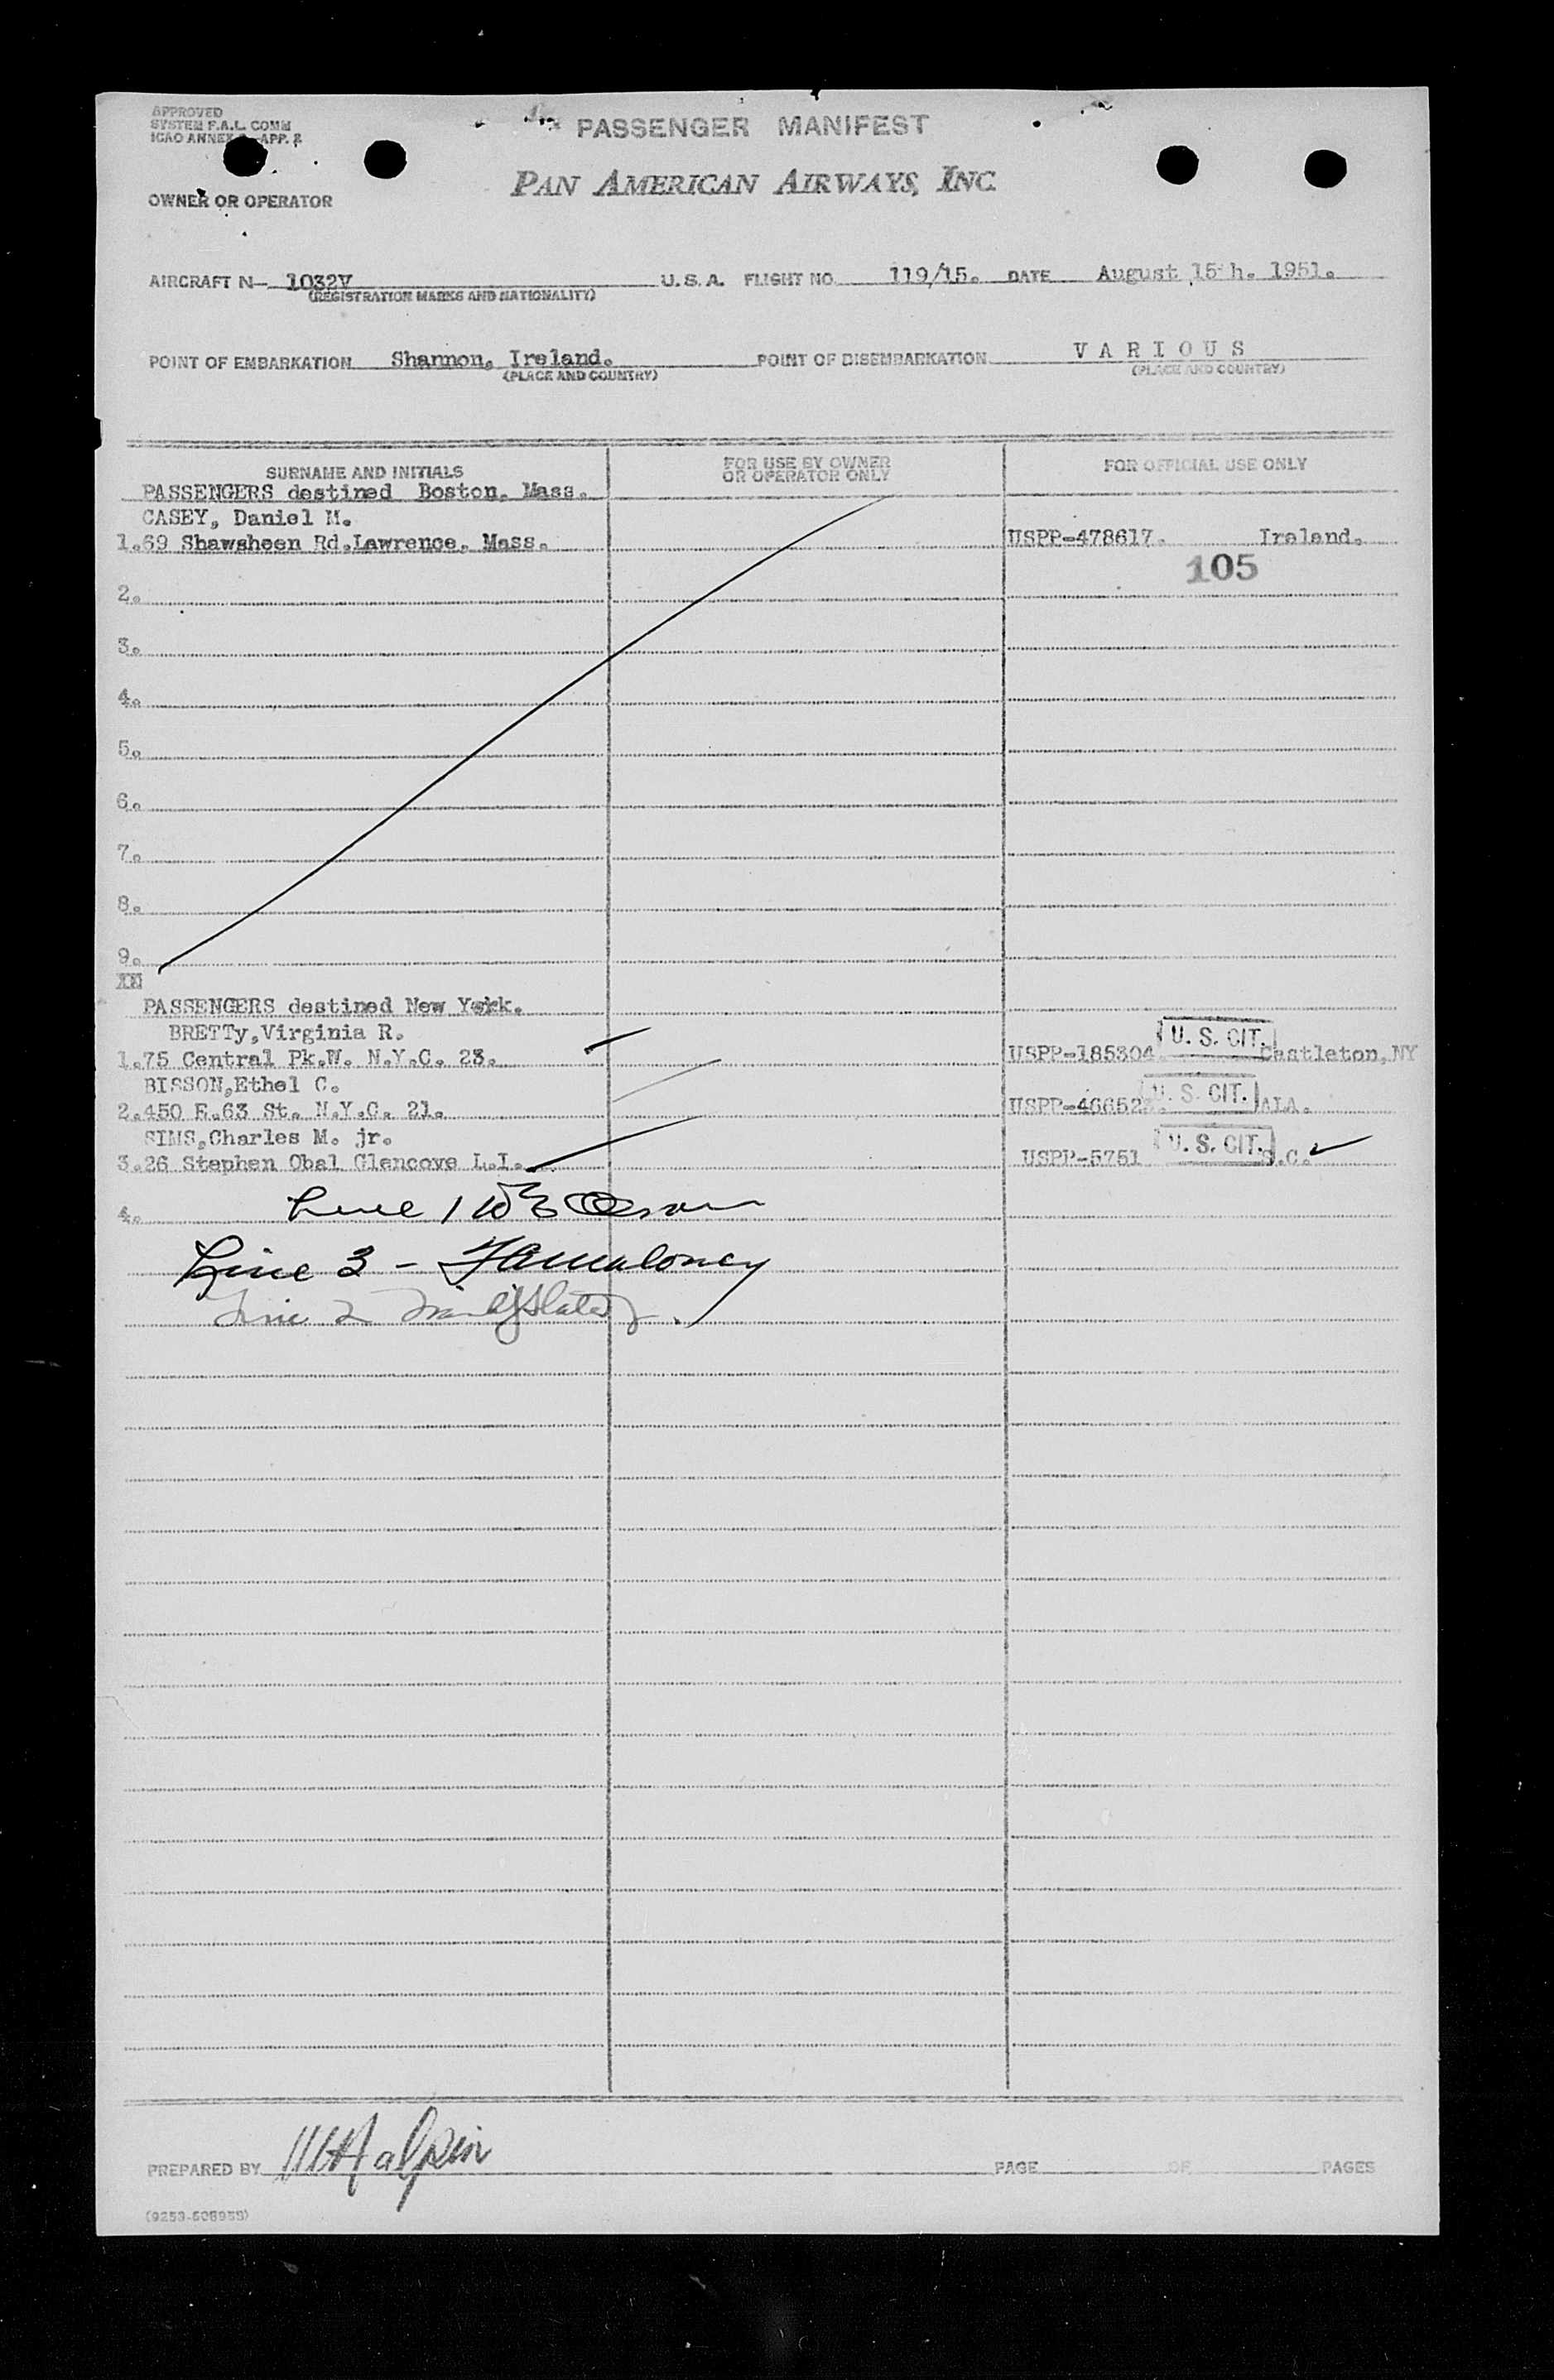 APPROVED
SYSTEM F.A.L. COMM
ICAO ANNEX APP. 
PASSENGER MANIFEST
PAN AMERICAN AIRWAYS, INC.
OWNER OR OPERATOR
AIRCRAFT N- 1032V U.S.A. FLIGHT NO. 119/15. DATE August 15th. 1951.
(REGISTRATION MARKS AND NATIONALITY)
POINT OF EMBARKATION Shannon, Ireland. POINT OF DISEMBARKATION VARIOUS
(PLACE AND COUNTRY) (PLACE AND COUNTRY)
SURNAME AND INITIALS FOR USE BY OWNER OR OPERATOR ONLY FOR OFFICIAL USE ONLY
PASSENGERS destined Boston, Mass.
CASEY, Daniel M.
1.69 Shawsheen Rd.Lawrence. Mass. USPP-478617. Ireland.
105
2.
3.
4.
5.
6.
7.
8.
9.
PASSENGERS destined New York.
BRETTy,Virginia R. U. S. CIT.
1.75 Central Pk.W. N.Y.C. 23. USPP-185304 Castleton,NY
BISSON,Ethel C. U. S. CIT.
2.450 E.63 St. N.Y.C. 21. USPP-466523. ALA.
SIMS,Charles M. jr. U. S. CIT.
3.26 Stephen Obal Glencove L.I. USPP-5751 S.C.
4. Line 1
Line 3 -
Line 2
PREPARED BY MHalpin PAGE OF PAGES